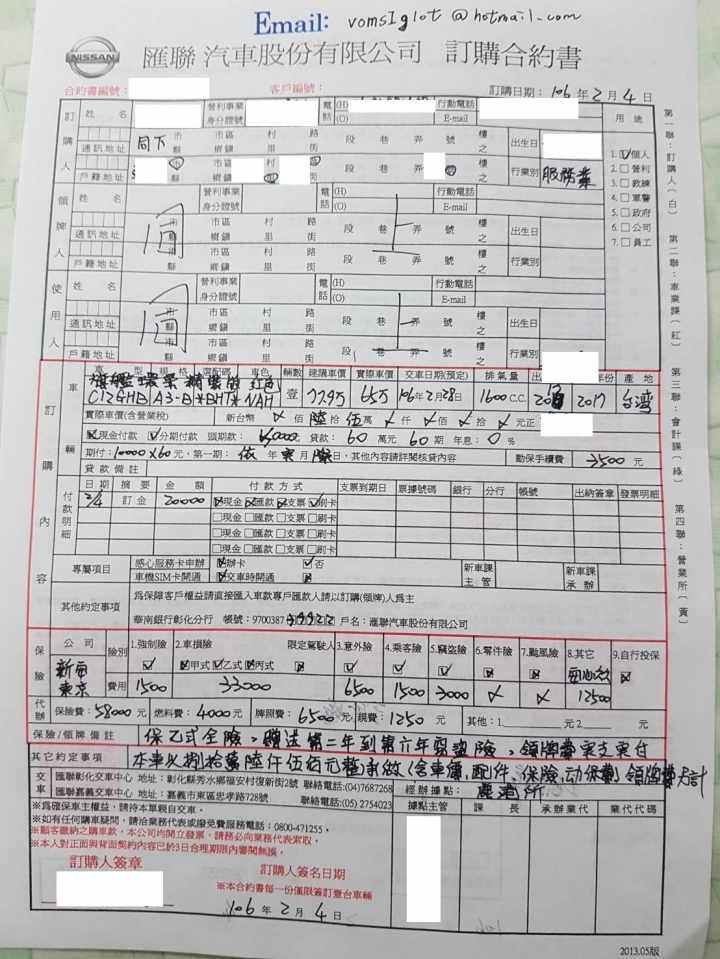 Email: vomsIglot@hotmail.com
NISSAN 匯聯 汽車股份有限公司 訂購合約書
合約書編號： 客戶編號： 訂購日期：106年2月4日
訂購人 姓名 營利事業 身分證號 電話 (H) (O) 行動電話 E-mail 用途
通訊地址 同下 市縣 市區鄉鎮 村里 路街 段 巷 弄 號 樓之 出生日
戶籍地址 市縣 市區鄉鎮 村里 路街 段 巷 弄 號 樓之 行業別 服務業
1.☑個人
2.□營利
3.□教練
4.□軍警
5.□政府
6.□公司
7.□員工
領牌人 姓名 營利事業 身分證號 電話 (H) (O) 行動電話 E-mail
通訊地址 同上 市縣 市區鄉鎮 村里 路街 段 巷 弄 號 樓之 出生日
戶籍地址 市縣 市區鄉鎮 村里 路街 段 巷 弄 號 樓之 行業別
使用人 姓名 營利事業 身分證號 電話 (H) (O) 行動電話 E-mail
通訊地址 同上 市縣 市區鄉鎮 村里 路街 段 巷 弄 號 樓之 出生日
戶籍地址 市縣 市區鄉鎮 村里 路街 段 巷 弄 號 樓之 行業別
第一聯：訂購人(白) 第二聯：車業課(紅) 第三聯：會計課(綠) 第四聯：營業所(黃)
訂購內容
車輛 車型 規格 選配碼 車色 輛數 建議車價 實際車價 交車日期(預定) 排氣量 年份 產地
旗艦環景精裝版 紅色
C12GHB A3-B*BHT*NAH 壹 77.9万 65万 106年2月28日 1600C.C. 2017 台灣
實際車價(含營業稅) 新台幣 佰 陸拾 伍萬 仟 佰 拾 元正
☑現金付款 ☑分期付款 頭期款： 貸款：60萬元 60期 年息：0%
期付：10000×60元，第一期：依年 月 日，其他內容請詳閱核貸內容 動保手續費 3500元
貸款備註
付款明細 日期 摘要 金額 付款方式 支票到期日 票據號碼 銀行 分行 帳號 出納簽章 發票明細
2/4 訂金 20000 現金 匯款 支票 ☑刷卡
□現金□匯款□支票□刷卡
□現金□匯款□支票□刷卡
□現金□匯款□支票□刷卡
專屬項目 感心服務卡申辦 辦卡 ☑否 新車課主管 新車課承辦
車機SIM卡開通 交車時開通
其他約定事項 為保障客戶權益請直接匯入車款專戶匯款人請以訂購(領牌)人為主
華南銀行彰化分行 帳號：9700387 戶名：匯聯汽車股份有限公司
保險 公司 險別 1.強制險 2.車損險 限定駕駛人 3.意外險 4.乘客險 5.竊盜險 6.零件險 7.颱風險 8.其它 9.自行投保
新安東京 甲式 ☑乙式 丙式
費用 1500 33000 6500 1500 3000 12500
代辦 保險費：58000元 燃料費：4000元 牌照費：6500元 規費：1250元 其他：1. 元2. 元
保險/領牌備註 保乙式全險。贈送第二年到第六年 險。領牌費實支實付
其它約定事項 本車以捌拾萬陸仟伍佰元整 (含車價、配件、保險、动保費) 領牌費另計
交車 匯聯彰化交車中心 地址：彰化縣秀水鄉福安村復新街2號 聯絡電話:(04)7687268
匯聯嘉義交車中心 地址：嘉義市東區忠孝路728號 聯絡電話:(05)2754023
經辦據點： 鹿港所
據點主管 課長 承辦業代 業代代碼
※為確保車主權益，請持本單親自交車。
※如有任何購車疑問，請洽業務代表或撥免費服務電話：0800-471255。
※顧客繳納之購車款，本公司均開立發票，請務必向業務代表索取。
※本人對正面與背面契約內容已於3日合理期限內審閱無誤。
訂購人簽章 訂購人簽名日期
※本合約書每一份僅限簽訂壹台車輛
106年2月4日
2013.05版